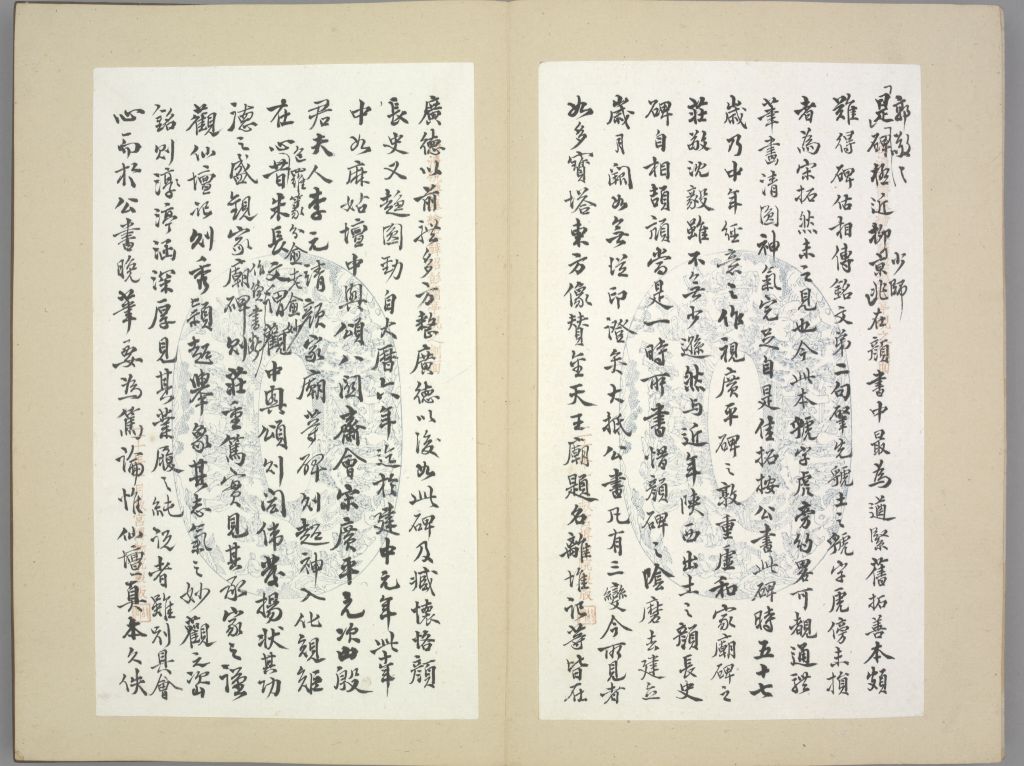 郭敬之
少師
是碑極近柳京兆在顏書中最為遒緊舊拓善本頗
難得碑估相傳銘文第二句肇先虢土之虢字虎傍未損
者為宋拓然未之見也今此本虢字虎旁約畧可覩通體
筆畫清圓神氣完足自是佳拓按公書此碑時五十七
歲乃中年經意之作視廣平碑之敦重虛和家廟碑之
莊敬沈毅雖不無少遜然与近年陝西出土之顏長史
碑自相頡頏當是一時所書惜顏碑之陰磨去建立
歲月闕如無從印證矣大抵公書凡有三變今所見者
如多寶塔東方像贊金天王廟題名離堆記等皆在
廣德以前㨿多方整廣德以後如此碑及臧懷恪顏
長史又趨圓勁自大曆六年迄於建中元年此十年
中如麻姑壇中興頌八關齋會宋廣平元次山殷
君夫人李元靖顏家廟等碑則超神入化規矩
在心昔朱長文謂觀中興頌則閎偉發揚狀其功
德之盛觀家廟碑則莊重篤實見其承家之謹
觀仙壇記則秀穎超舉象其志氣之妙觀元次山
銘則淳涵深厚見其業履之純說者雖別具會
心而於公書晚筆要為篤論惟仙壇真本久佚